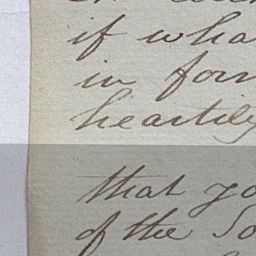 if wha
in for
heartily
that yo
of the So